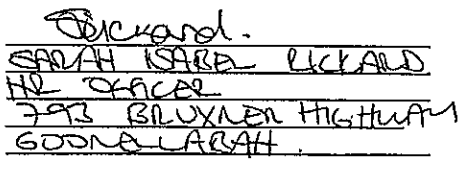 SRickard.
SARAH ISABEL RICKARD
HR OFFICER
793 BRUXNER HIGHWAY
GOONELLABAH.